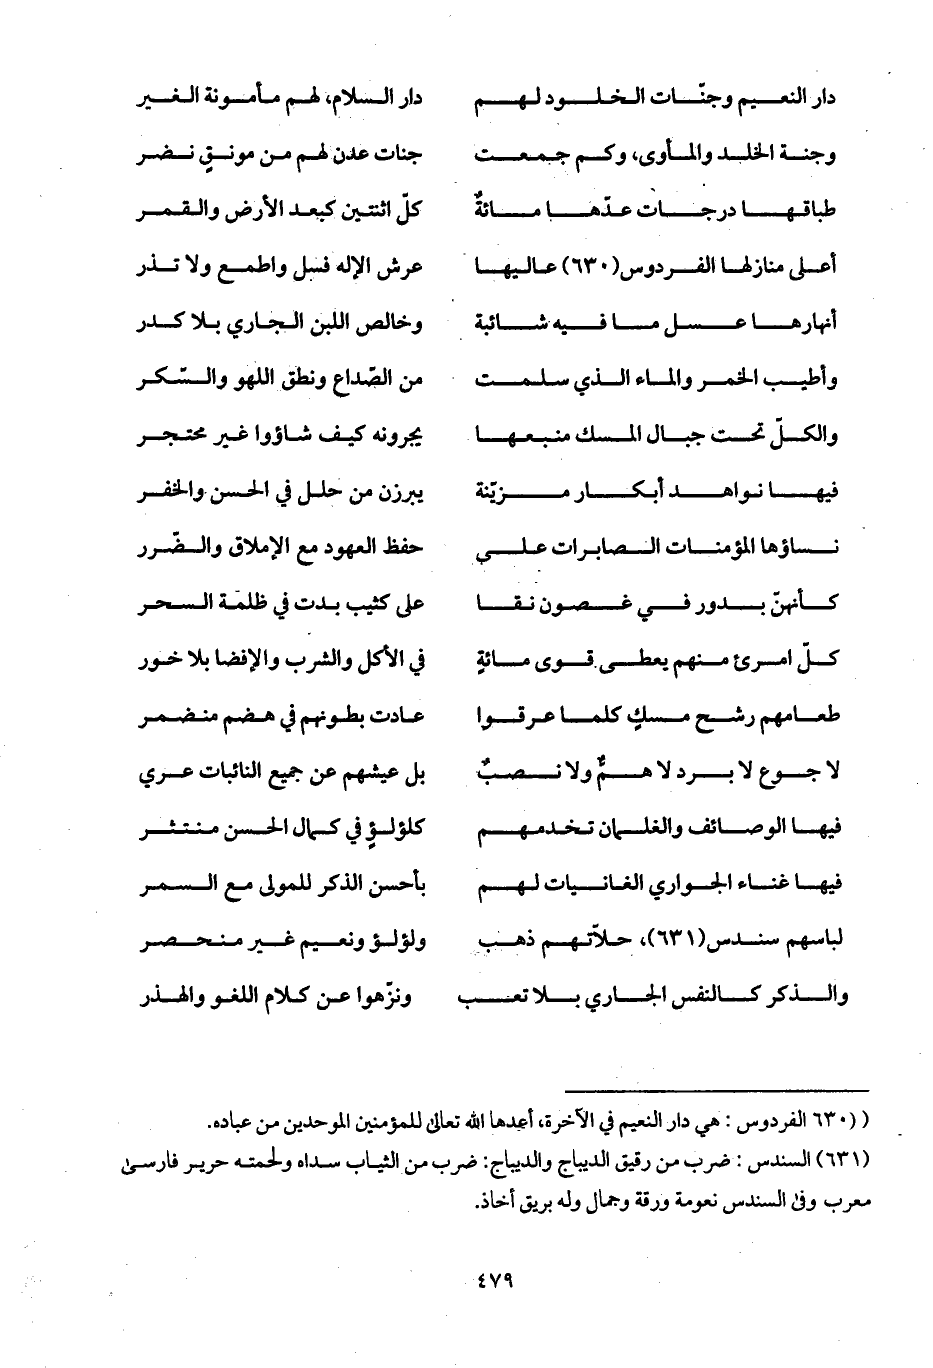 دار النعيم وجنّات الخلود لهم دار السلام، لهم مأمونة الغير
وجنة الخلد والمأوى، وكم جمعت جنات عدن لهم من مونقٍ نضر
طباقها درجات عدّها مائةٌ كلّ اثنتين كبعد الأرض والقمر
أعلى منازلها الفردوس(٦٣٠) عاليها عرش الإله فسل واطمع ولا تذر
أنهارها عسل ما فيه شائبة وخالص اللبن الجاري بلا كدر
وأطيب الخمر والماء الذي سلمت من الصّداع ونطق اللهو والسّكر
والكلّ تحت جبال المسك منبعها يجرونه كيف شاؤوا غير محتجر
فيها نواهد أبكار مزيّنة يبرزن من حلل في الحسن والخفر
نساؤها المؤمنات الصابرات على حفظ العهود مع الإملاق والضّرر
كأنهنّ بدور في غصون نقا على كثيب بدت في ظلمة السحر
كلّ امرئ منهم يعطى قوى مائةٍ في الأكل والشرب والإفضا بلا خور
طعامهم رشح مسكٍ كلما عرقوا عادت بطونهم في هضم منضمر
لا جوع لا برد لا همٌّ ولا نصبٌ بل عيشهم عن جميع النائبات عري
فيها الوصائف والغلمان تخدمهم كلؤلؤٍ في كمال الحسن منتثر
فيها غناء الجواري الغانيات لهم بأحسن الذكر للمولى مع السمر
لباسهم سندس(٦٣١)، حلاّتهم ذهب ولؤلؤ ونعيم غير منحصر
والذكر كالنفس الجاري بلا تعب ونزّهوا عن كلام اللغو والهذر
( (٦٣٠ الفردوس : هي دار النعيم في الآخرة، أعدها الله تعالى للمؤمنين الموحدين من عباده.
(٦٣١) السندس : ضرب من رقيق الديباج والديباج: ضرب من الثياب سداه ولحمته حرير فارسى
معرب وفى السندس نعومة ورقة وجمال وله بريق أخاذ.
٤٧٩